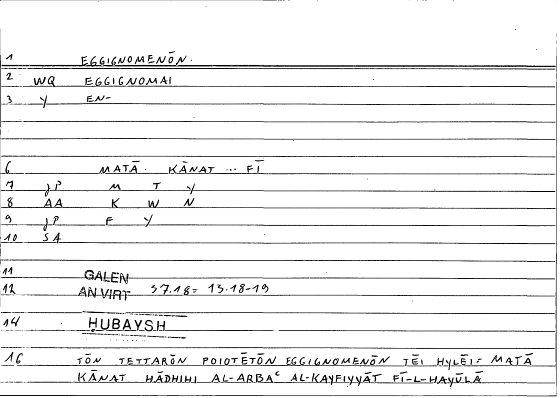 1 EGGIGNOMENŌN.
2 WQ EGGIGNOMAI
3 Y EN-
6 MATĀ. KĀNAT ... FĪ
7 JP M T Y
8 AA K W N
9 JP F Y
10 SA
11 GALEN
12 AN VIRT 37.18 = 13.18-19
14 ḤUBAYSH
16 TŌN TETTARŌN POIOTĒTŌN EGGIGNOMENŌN TĒI HYLĒI = MATĀ
KĀNAT HĀDHIHI AL-ARBAᶜ AL-KAYFIYYĀT FĪ-L-HAYŪLĀ